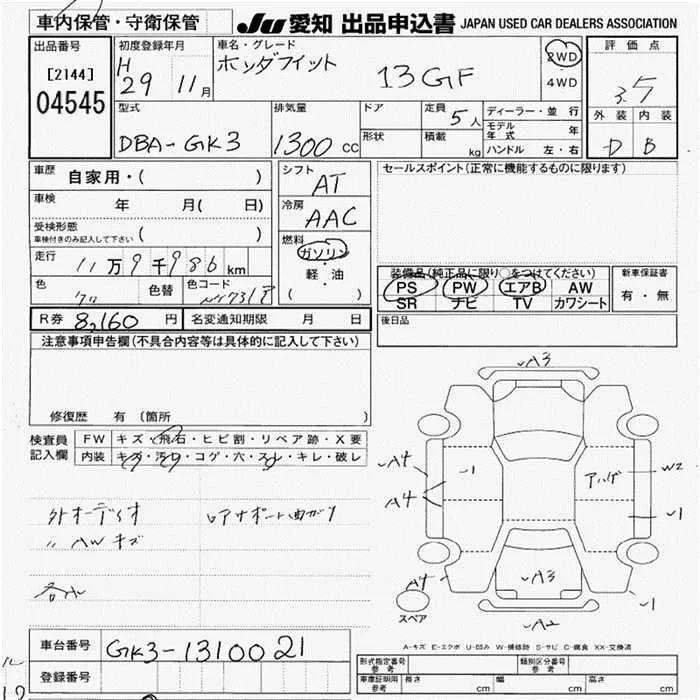 車内保管・守衛保管
JU 愛知 出品申込書 JAPAN USED CAR DEALERS ASSOCIATION
出品番号
[2144]
04545
初度登録年月
H 29 11月
車名・グレード
ホンダフィット 13GF
2WD
4WD
評価点
3.5
外装 内装
D B
型式
DBA-GK3
排気量
1300 cc
ドア
形状
定員 5人
積載 kg
ディーラー・並行
モデル年式 年
ハンドル 左・右
車歴 自家用・( )
車検 年 月( 日)
受検形態
車検付きのみ記入して下さい ( )
走行 11万9千986km
色 色替 色コード
シフト
AT
冷房
AAC
燃料
ガソリン
・
軽・油
( )
セールスポイント(正常に機能するものに限ります)
装備品(純正品に限り○をつけてください)
PS PW エアB AW
SR ナビ TV カワシート
新車保証書
有・無
R券 8,160円 名変通知期限 月 日
後日品
注意事項申告欄(不具合内容等は具体的に記入して下さい)
修復歴 有(箇所 )
検査員記入欄
FW キズ・飛石・ヒビ割・リペア跡・X要
内装 キズ・汚レ・コゲ・穴・スレ・キレ・破レ
外オーディオ リアサポート曲がり
〃 AWキズ
各小
A3
A4
A4
1
アハゲ
W2
1
A4
A3
1
A2
スペア
A-キズ E-エクボ U-凹み W-補修跡 S-サビ C-腐食 XX-交換済
車台番号 GK3-1310021
登録番号
型式指定番号 参考
類別区分番号 参考
車庫証明用 参考 長さ cm 幅 cm 高さ cm